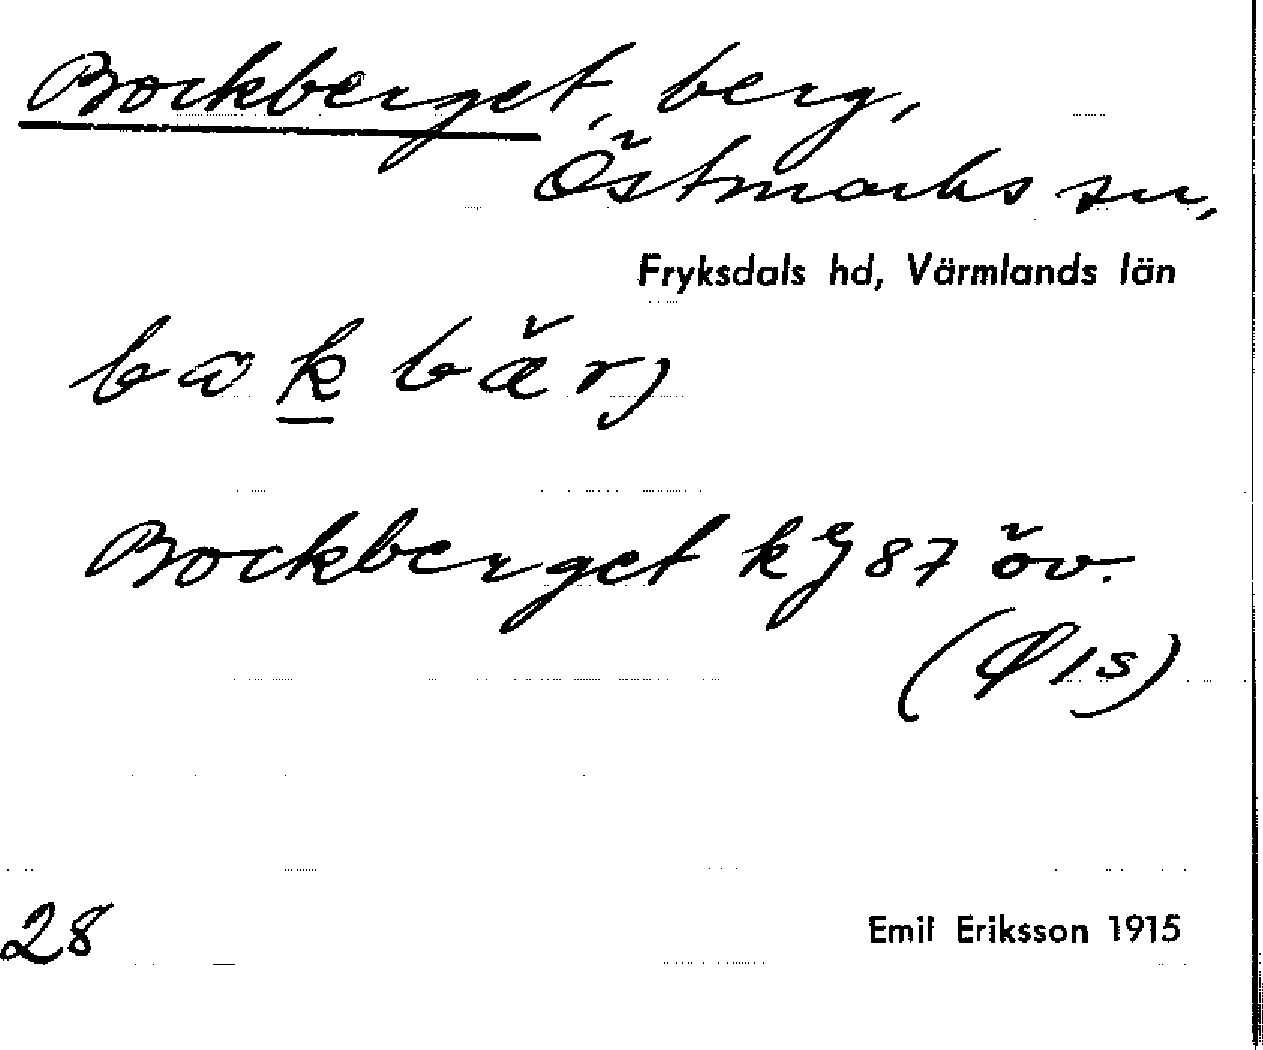 Bockberget, berg,
Östmarks sn,
Fryksdals hd, Värmlands län
bakbärj
Bockberget kg 87 öv.
28
Emil Eriksson 1915